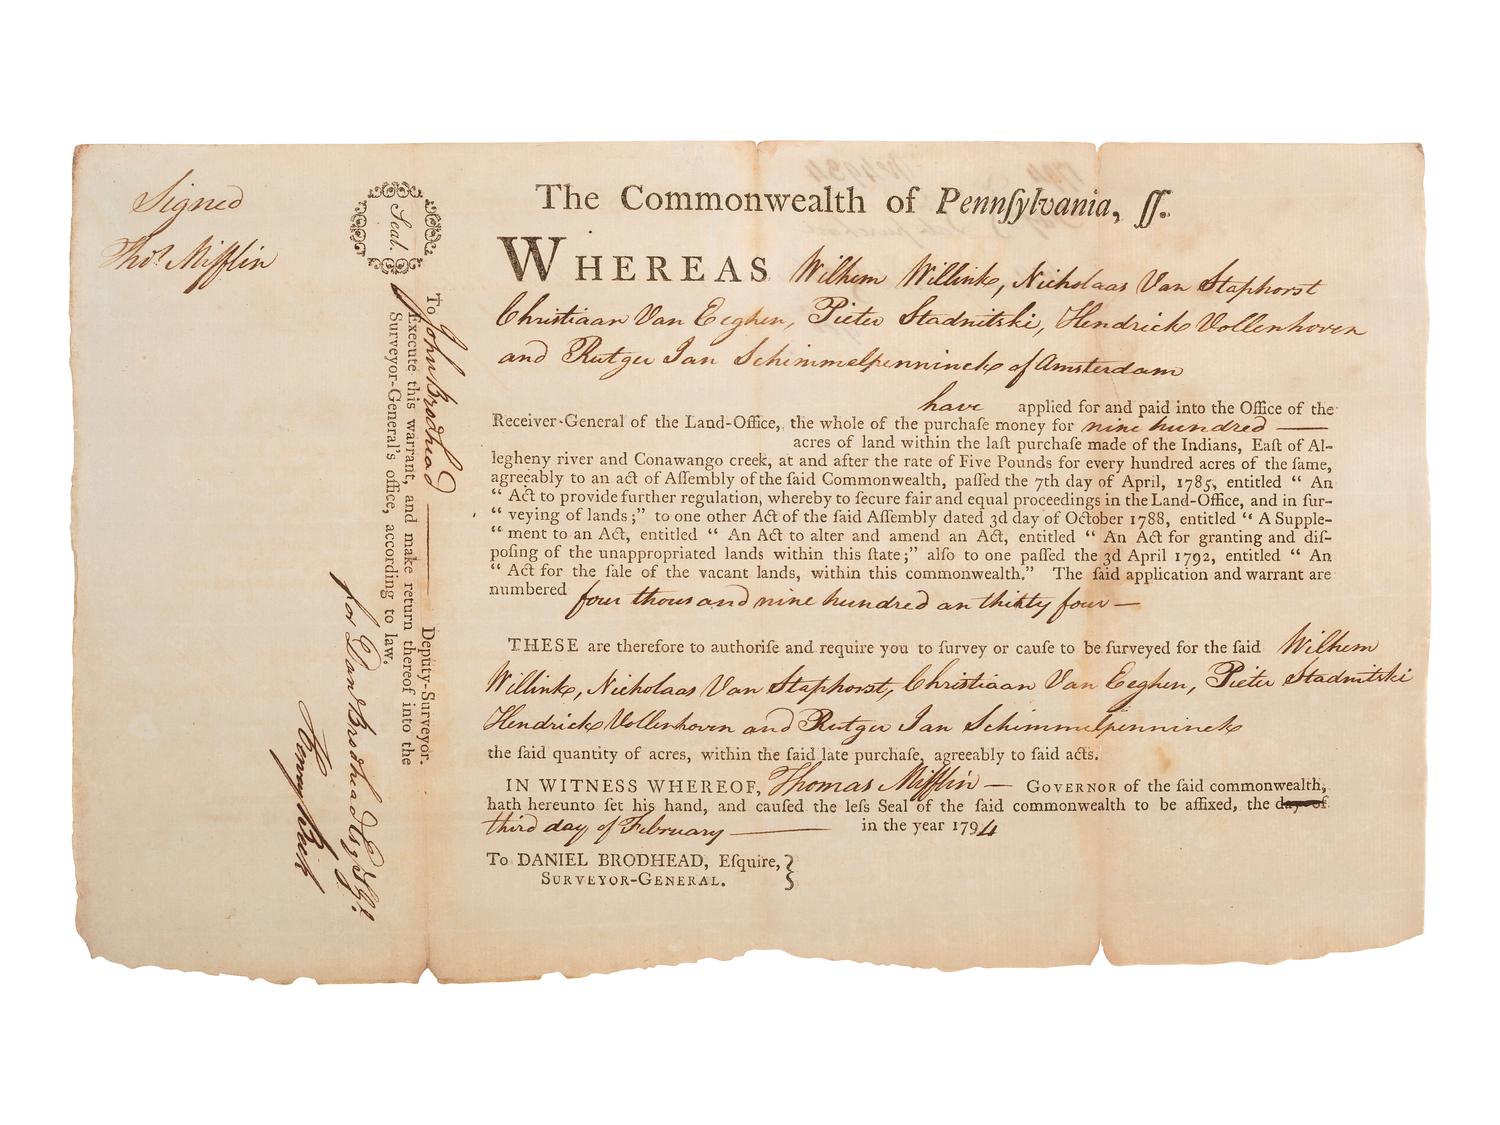 Signed
Thos. Mifflin
Seal.
To John Brodhead Deputy-Surveyor.
Execute this warrant, and make return thereof into the
Surveyor-General's office, according to law.
for Dan Brodhead Esqr. S.G.
The Commonwealth of Pennſylvania, ſſ.
WHEREAS Wilhem Willink, Nicholaas Van Staphorst
Christiaan Van Eeghen, Pieter Stadnitski, Hendrick Vollenhoven
and Rutger Jan Schimmelpenninck of Amsterdam
have applied for and paid into the Office of the
Receiver-General of the Land-Office, the whole of the purchaſe money for nine hundred
acres of land within the laſt purchaſe made of the Indians, Eaſt of Al-
legheny river and Conawango creek, at and after the rate of Five Pounds for every hundred acres of the ſame,
agreeably to an act of Aſſembly of the ſaid Commonwealth, paſſed the 7th day of April, 1785, entitled “ An
“ Act to provide further regulation, whereby to ſecure fair and equal proceedings in the Land-Office, and in ſur-
“ veying of lands;” to one other Act of the ſaid Aſſembly dated 3d day of October 1788, entitled “ A Supple-
“ ment to an Act, entitled “ An Act to alter and amend an Act, entitled “ An Act for granting and diſ-
poſing of the unappropriated lands within this ſtate;” alſo to one paſſed the 3d April 1792, entitled “ An
“ Act for the ſale of the vacant lands, within this commonwealth.” The ſaid application and warrant are
numbered four thousand nine hundred an thirty four —
THESE are therefore to authoriſe and require you to ſurvey or cauſe to be ſurveyed for the ſaid Wilhem
Willink, Nicholaas Van Staphorst, Christiaan Van Eeghen, Pieter Stadnitski
Hendrick Vollenhoven and Rutger Jan Schimmelpenninck
the ſaid quantity of acres, within the ſaid late purchaſe, agreeably to ſaid acts.
IN WITNESS WHEREOF, Thomas Mifflin — GOVERNOR of the ſaid commonwealth,
hath hereunto ſet his hand, and cauſed the leſs Seal of the ſaid commonwealth to be affixed, the day of
third day of February in the year 1794
To DANIEL BRODHEAD, Eſquire,
SURVEYOR-GENERAL.